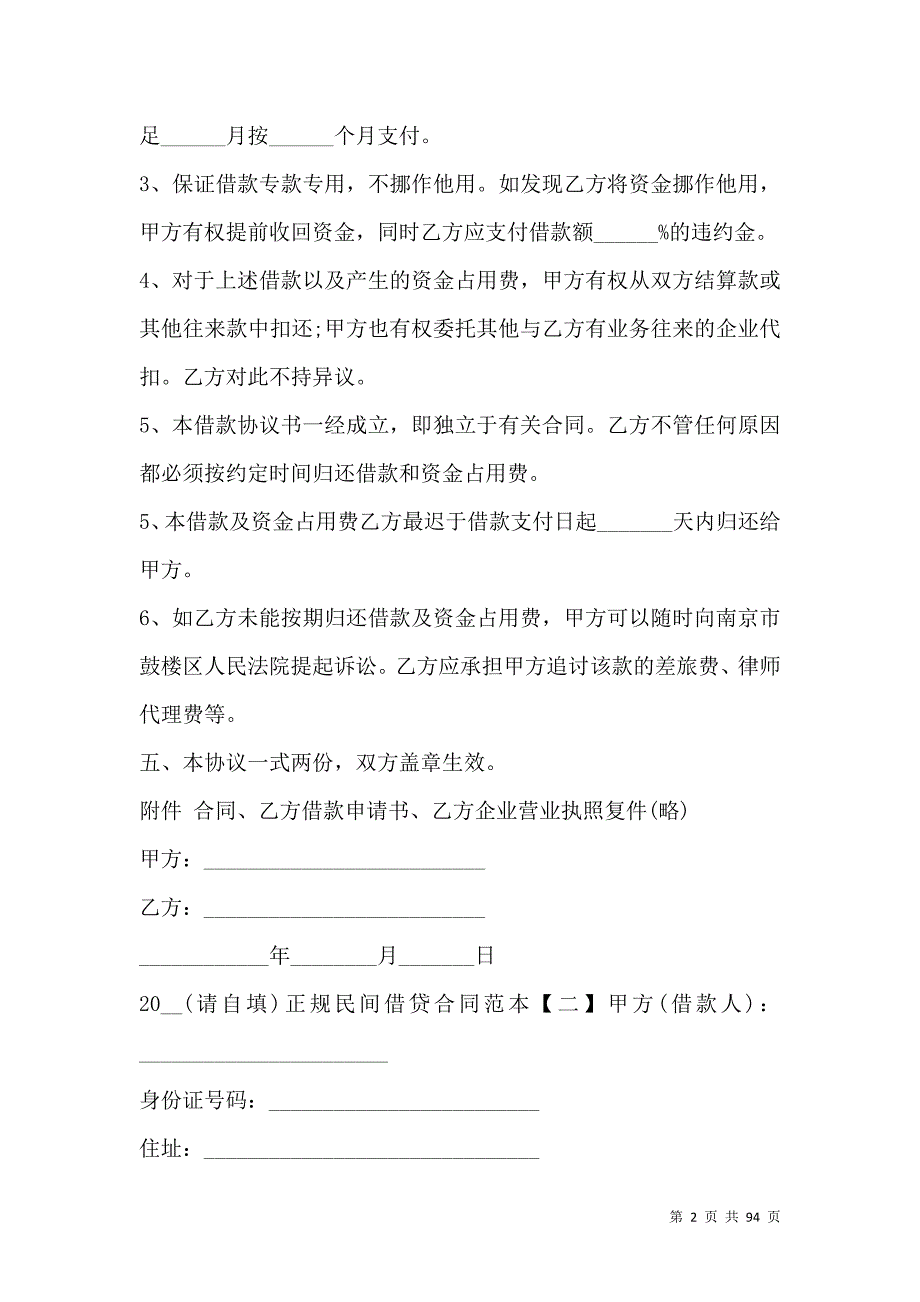 足______月按______个月支付。
3、保证借款专款专用，不挪作他用。如发现乙方将资金挪作他用，
甲方有权提前收回资金，同时乙方应支付借款额______%的违约金。
4、对于上述借款以及产生的资金占用费，甲方有权从双方结算款或
其他往来款中扣还;甲方也有权委托其他与乙方有业务往来的企业代
扣。乙方对此不持异议。
5、本借款协议书一经成立，即独立于有关合同。乙方不管任何原因
都必须按约定时间归还借款和资金占用费。
5、本借款及资金占用费乙方最迟于借款支付日起_______天内归还给
甲方。
6、如乙方未能按期归还借款及资金占用费，甲方可以随时向南京市
鼓楼区人民法院提起诉讼。乙方应承担甲方追讨该款的差旅费、律师
代理费等。
五、本协议一式两份，双方盖章生效。
附件 合同、乙方借款申请书、乙方企业营业执照复件(略)
甲方：__________________________
乙方：__________________________
____________年________月_______日
20__(请自填)正规民间借贷合同范本【二】甲方(借款人)：
_______________________
身份证号码：_________________________
住址：_______________________________
第 2 页 共 94 页